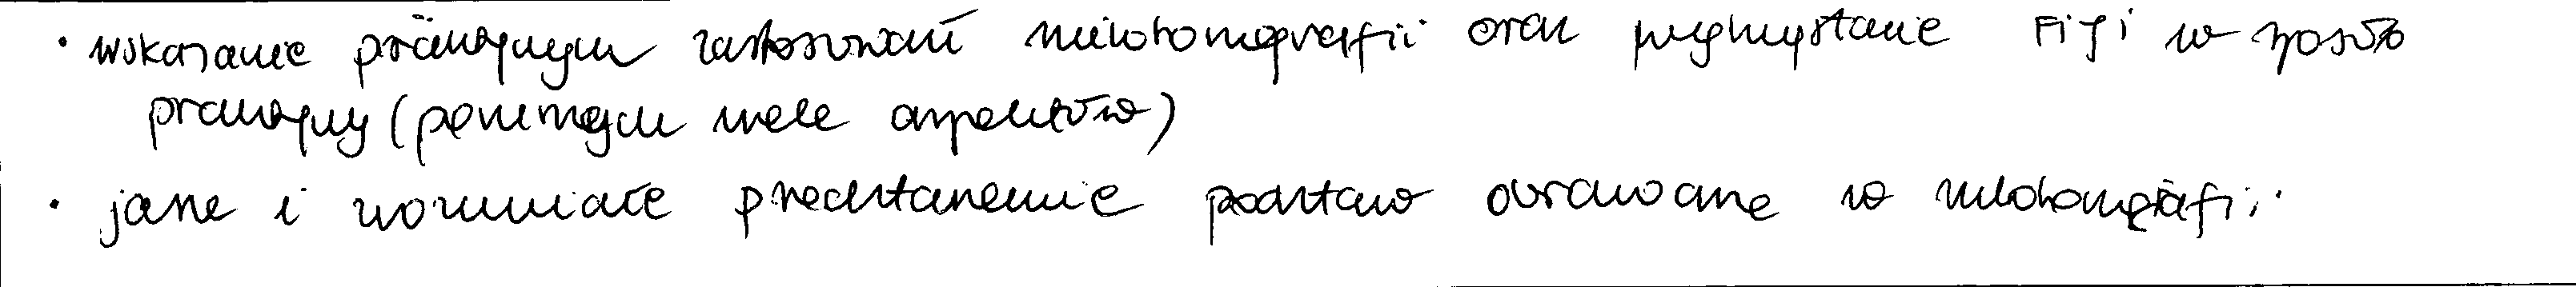 • wskazanie praktycznym zastosowań mikrotomografii oraz wykorzystanie Fiji w sposób
praktyczny (pominięcie wiele aspektów)
• jasne i zrozumiałe przedstawienie podstaw obrazowania w mikrotomografii